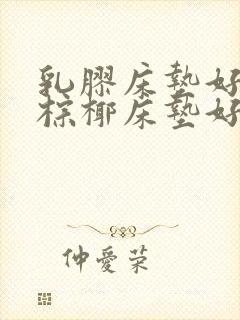 乳膠床墊好
棕椰床墊好
仲愛荣